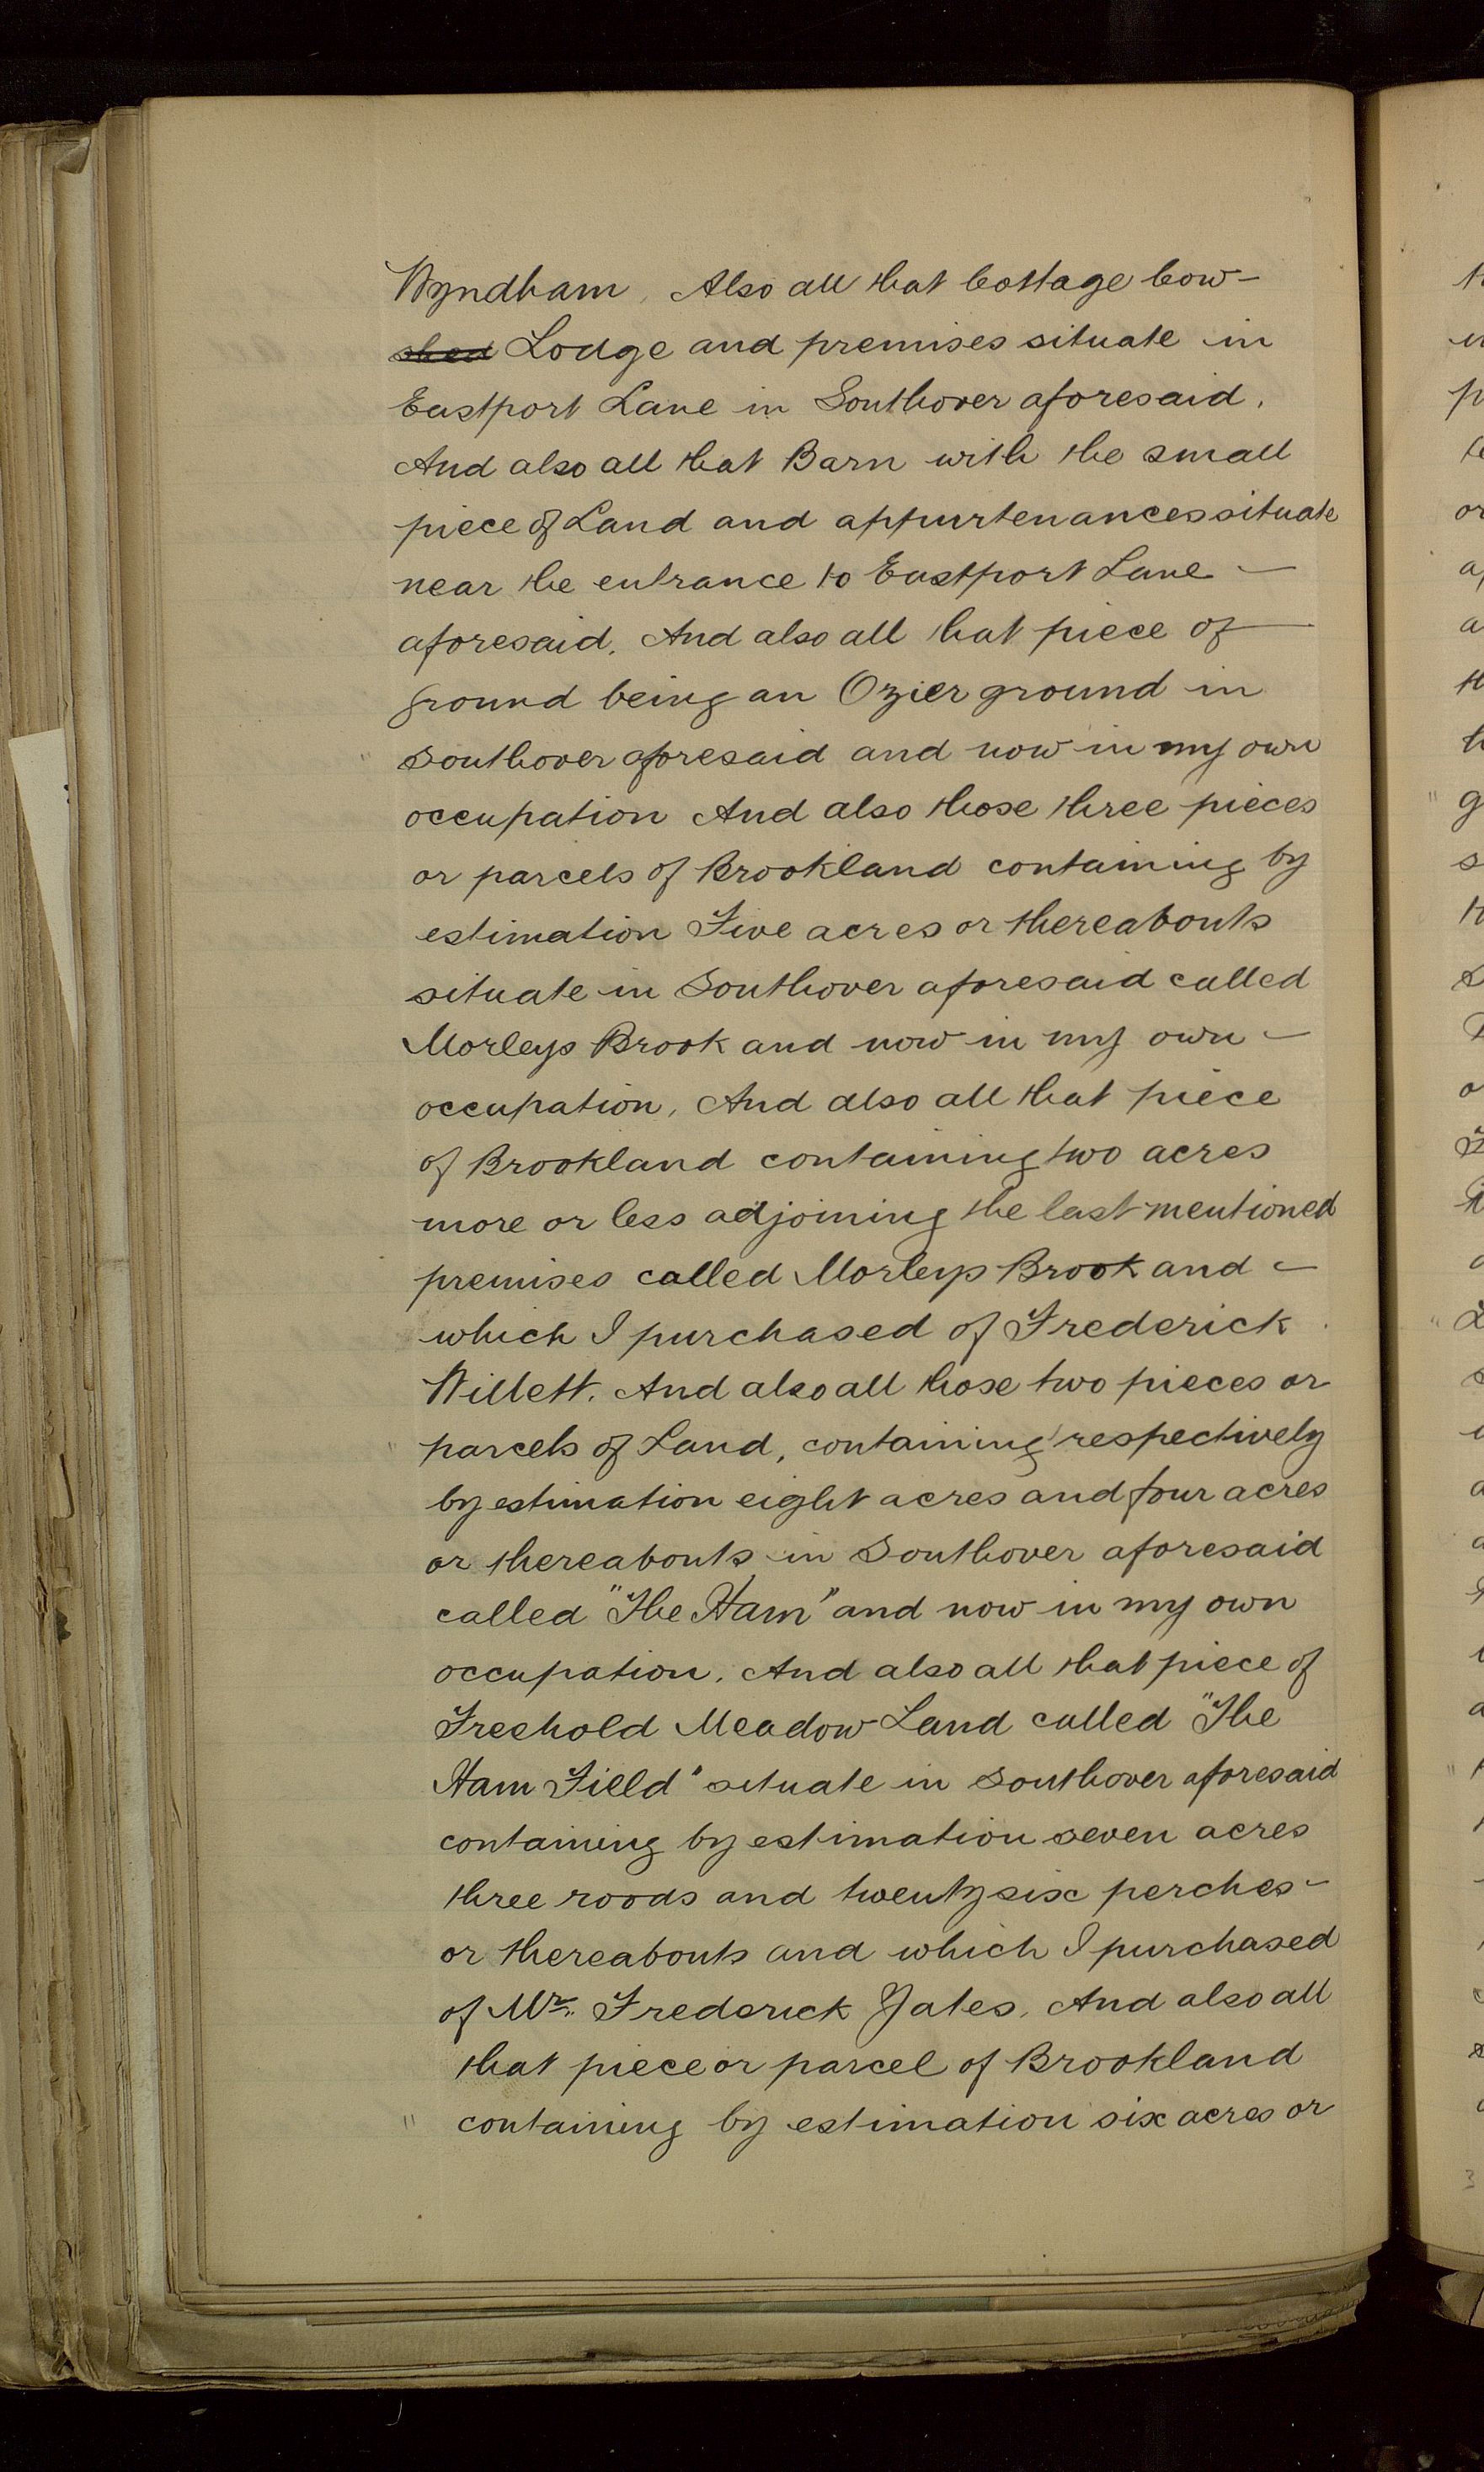 Wyndham, Also all that Cottage Cow-
shed Lodge and premises situate in
Eastport Lane in Southover aforesaid.
And also all that Barn with the small
piece of Land and appurtenances situate
near the entrance to Eastport Lane —
aforesaid. And also all that piece of —
ground being an Ozier ground in
Southover aforesaid and now in my own
occupation And also those three pieces
or parcels of Brookland containing by
estimation Five acres or thereabouts
situate in Southover aforesaid called
Morleys Brook and now in my own —
occupation, And also all that piece
of Brookland containing two acres
more or less adjoining the last mentioned
premises called Morleys Brook and —
which I purchased of Frederick
Willett. And also all those two pieces or
parcels of Land, containing respectively
by estimation eight acres and four acres
or thereabouts in Southover aforesaid
called "The Ham" and now in my own
occupation. And also all that piece of
Freehold Meadow Land called "The
Ham Field" situate in Southover aforesaid
containing by estimation seven acres
three roods and twenty six perches -
or thereabouts and which I purchased
of Mr. Frederick Yates. And also all
that piece or parcel of Brookland
containing by estimation six acres or